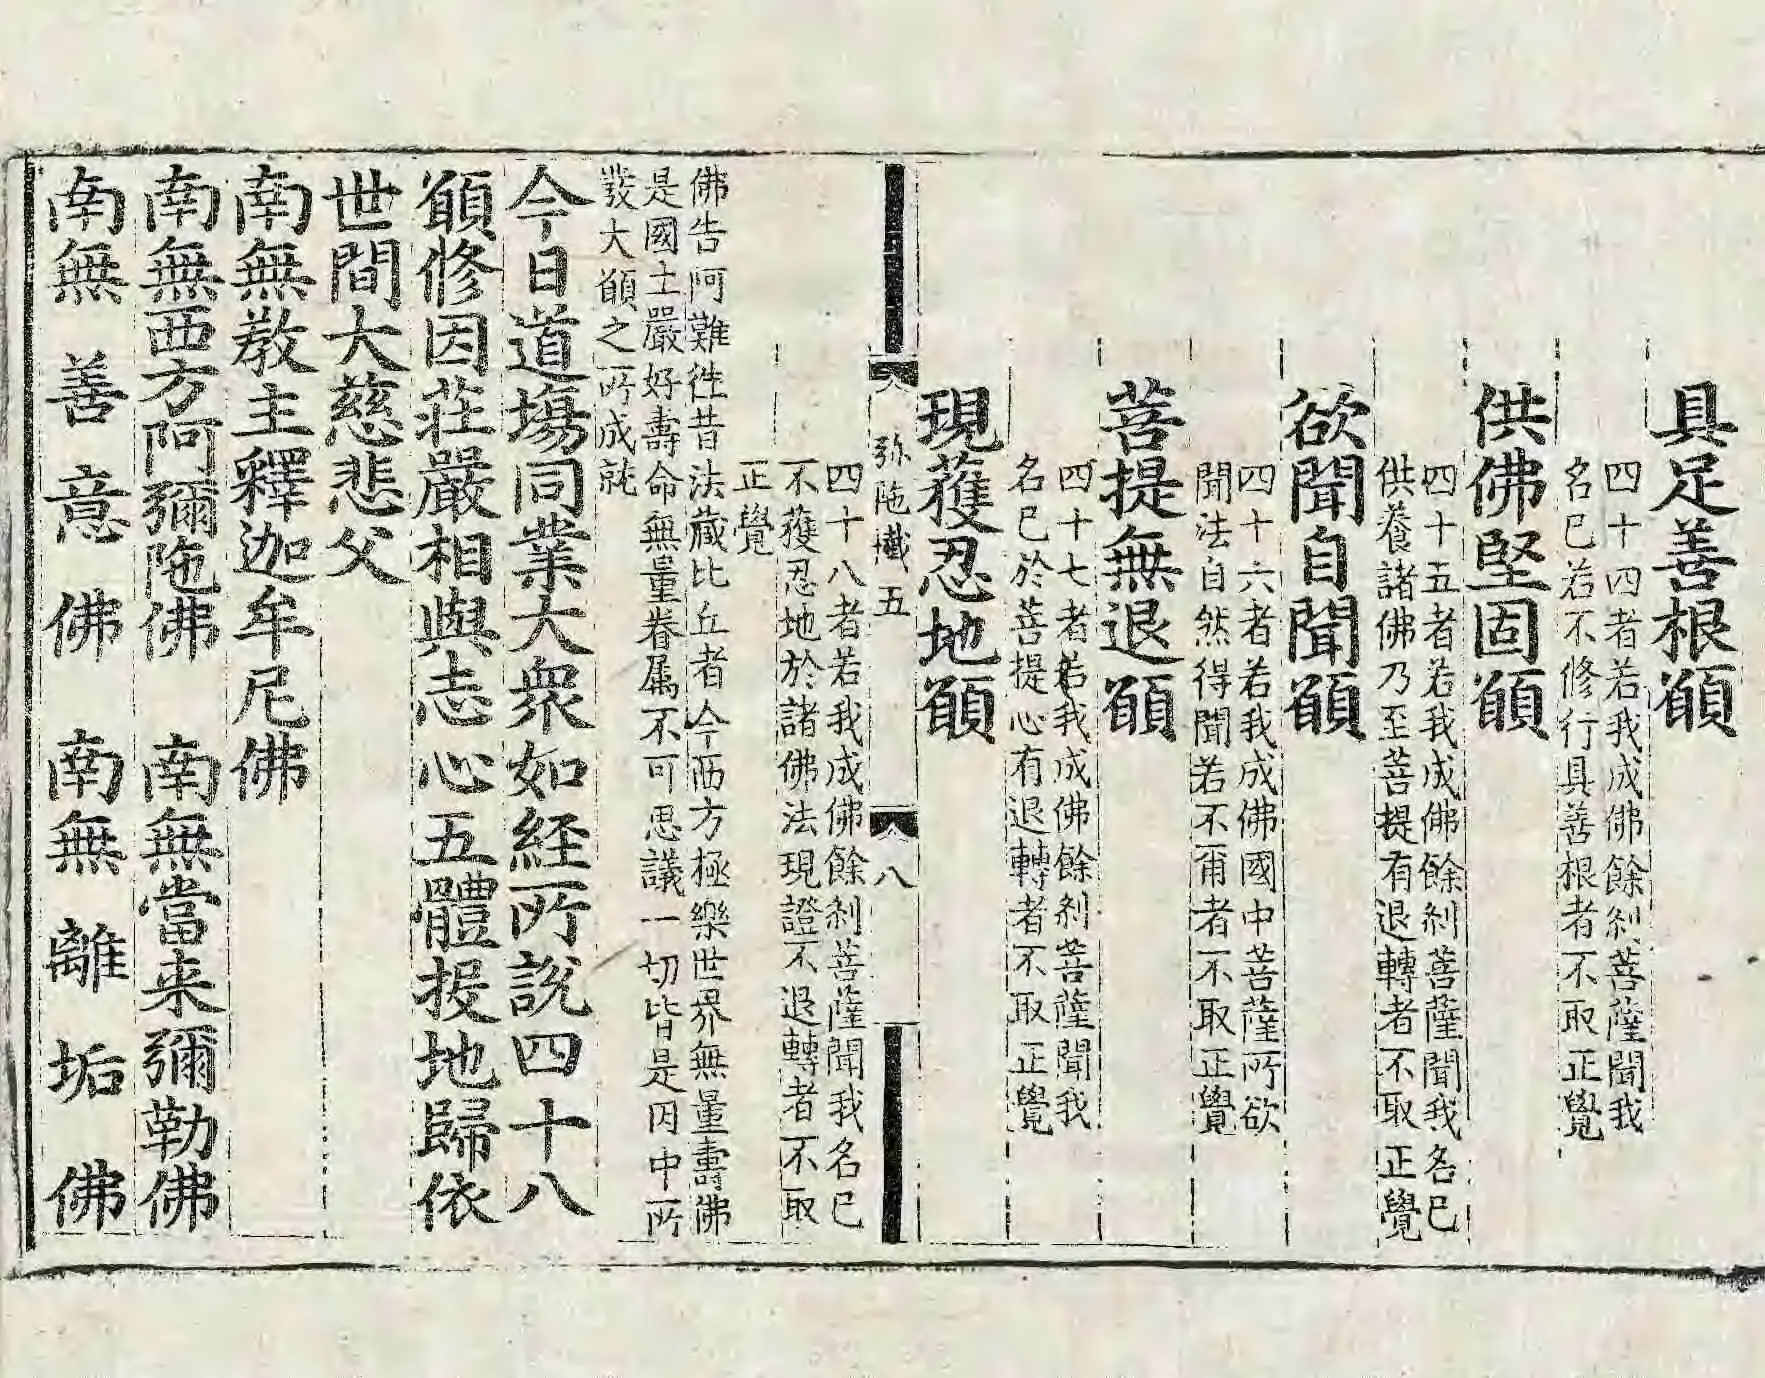 具足善根願
四十四者若我成佛餘刹菩薩聞我
名已若不修行具善根者不取正覺
供佛堅固願
四十五者若我成佛餘刹菩薩聞我名已
供養諸佛乃至菩提有退轉者不取正覺
欲聞自聞願
四十六者若我成佛國中菩薩所欲
聞法自然得聞若不爾者不取正覺
菩提無退願
四十七者若我成佛餘刹菩薩聞我
名已於菩提心有退轉者不取正覺
現獲忍地願
弥陁懴五
八
四十八者若我成佛餘刹菩薩聞我名已
不獲忍地於諸佛法現證不退轉者不取
正覺
佛告阿難徃昔法藏比丘者今西方極樂世界無量壽佛
是國土嚴好壽命無量眷属不可思議一切皆是因中所
發大願之所成就
今日道塲同業大衆如経所說四十八
願修因莊嚴相與志心五體投地歸依
世間大慈悲父
南無教主釋迦牟尼佛
南無西方阿彌陁佛 南無當来彌勒佛
南無善意佛 南無離垢佛